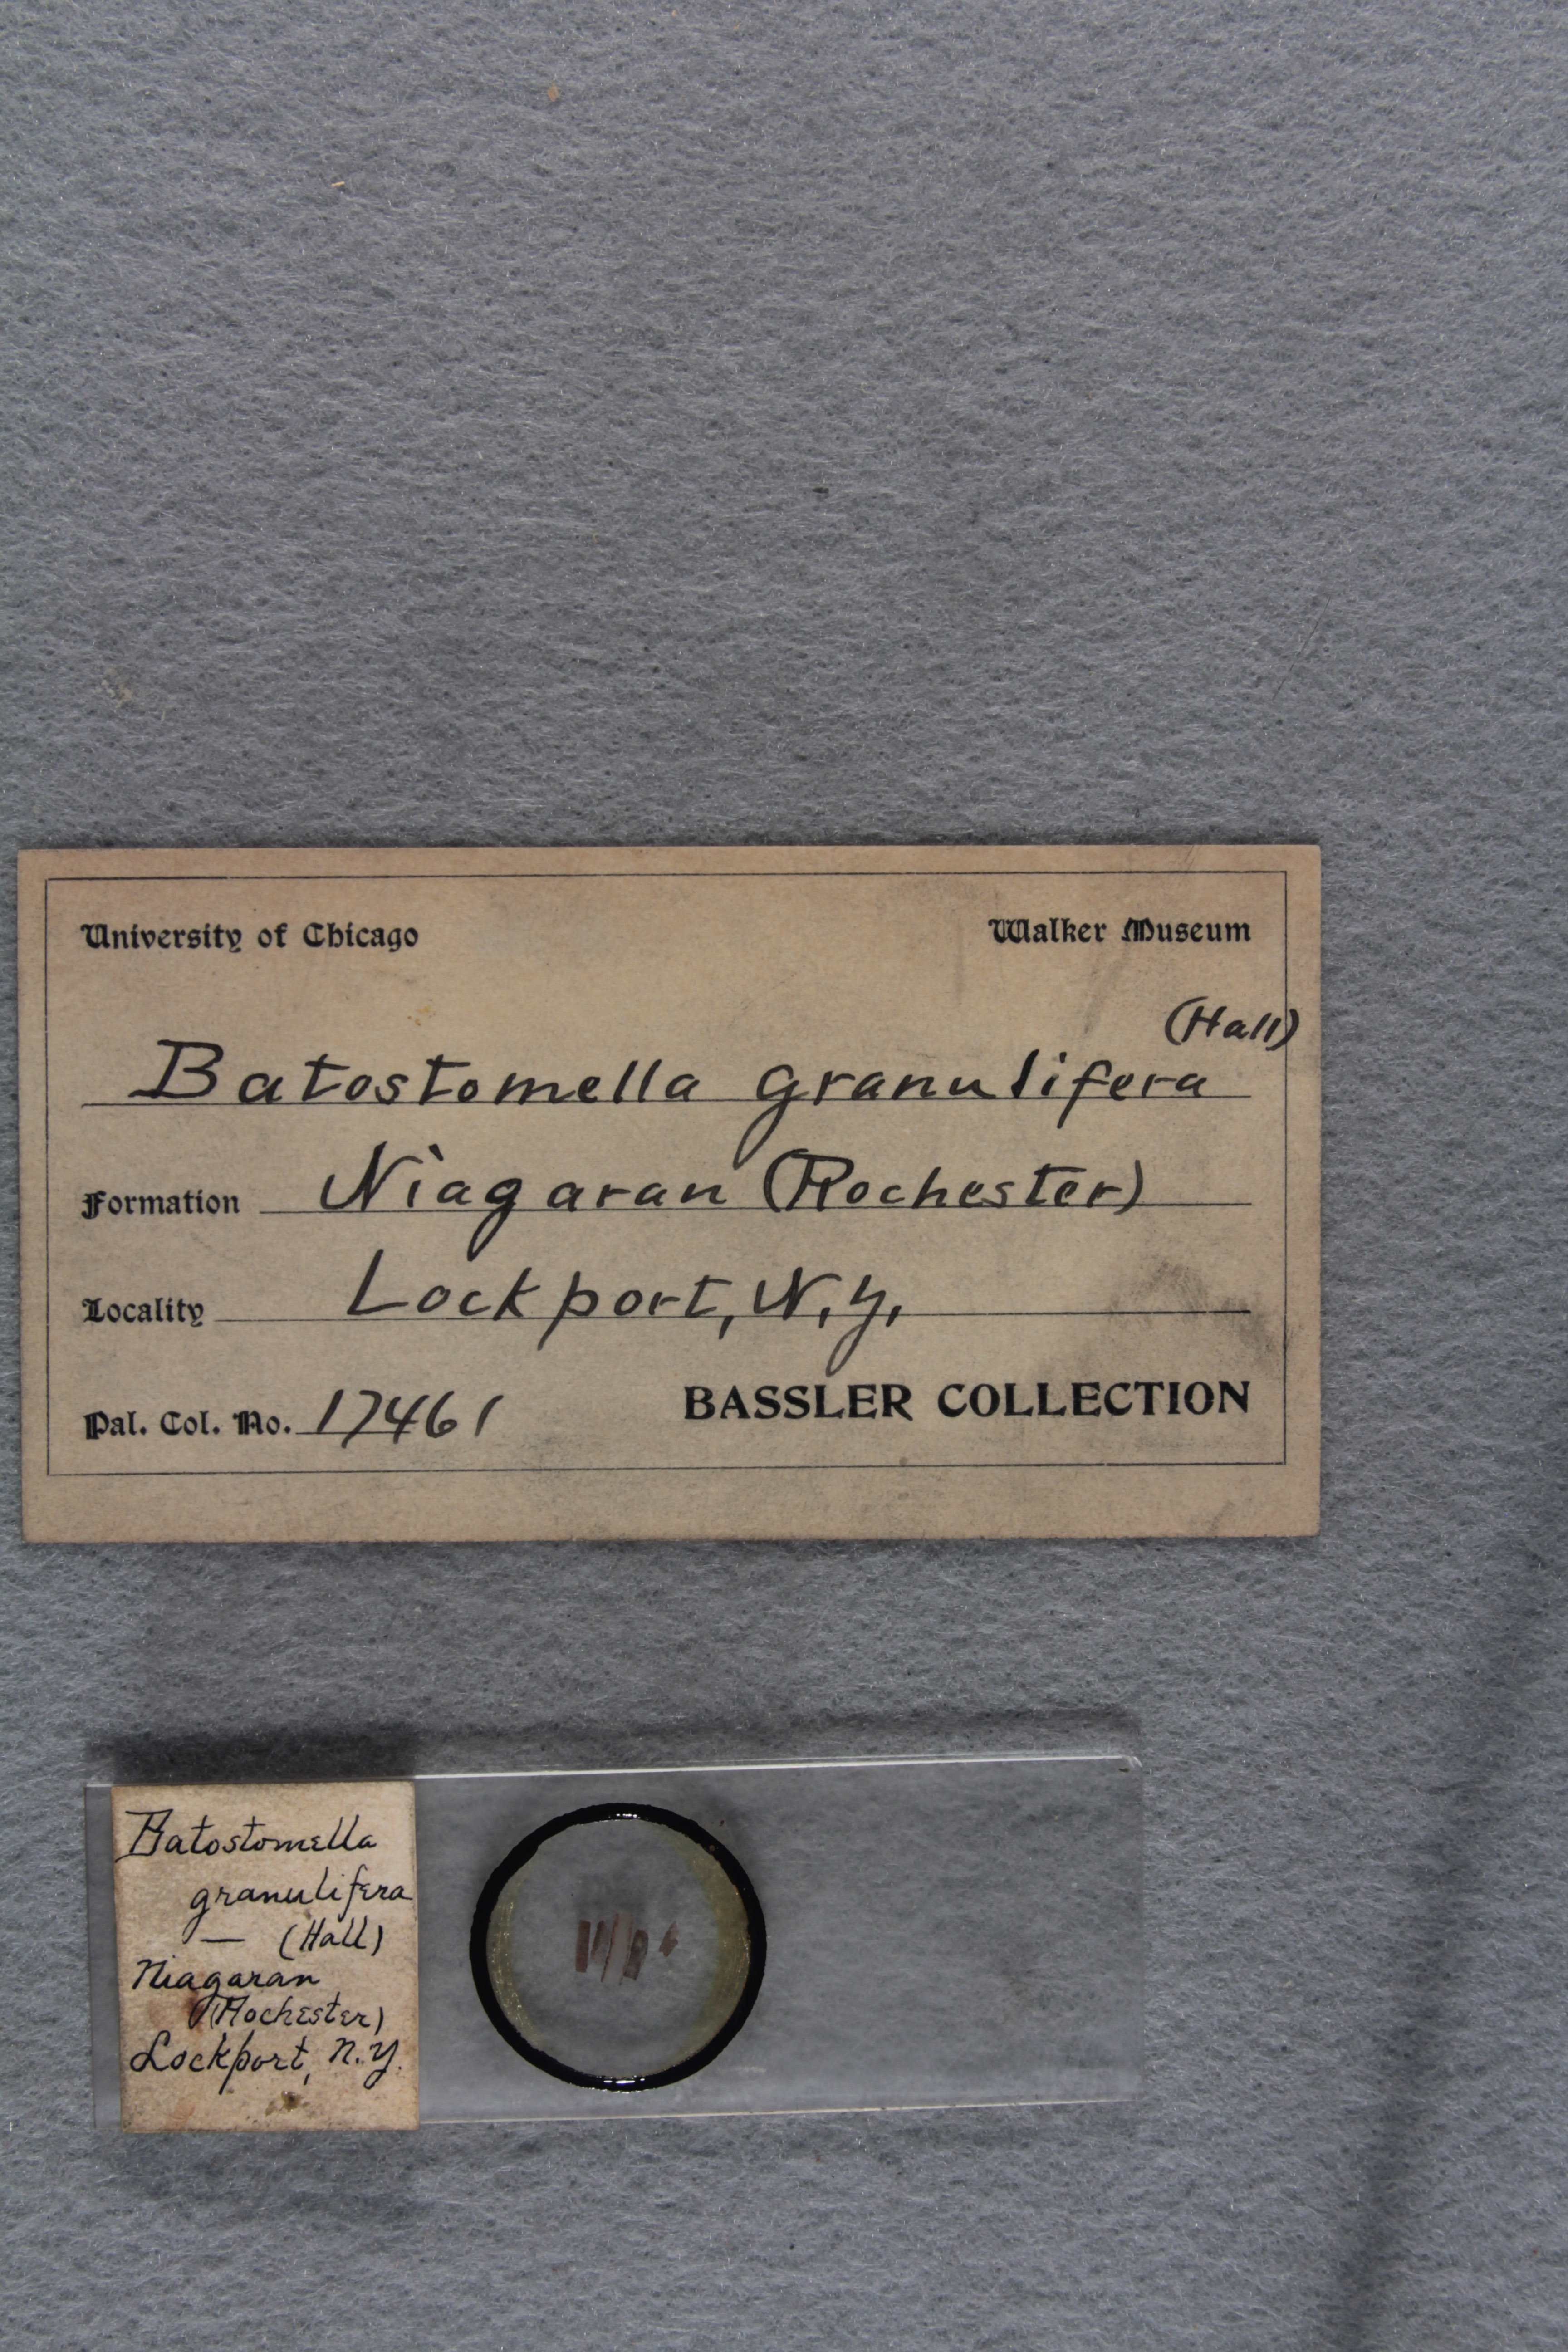 University of Chicago Walker Museum
(Hall)
Batostomella granulifera
Formation Niagaran (Rochester)
Locality Lockport, N.Y.
Pal. Col. No. 17461 BASSLER COLLECTION
Batostomella
granulifera
— (Hall)
Niagaran
(Rochester)
Lockport, N.Y.